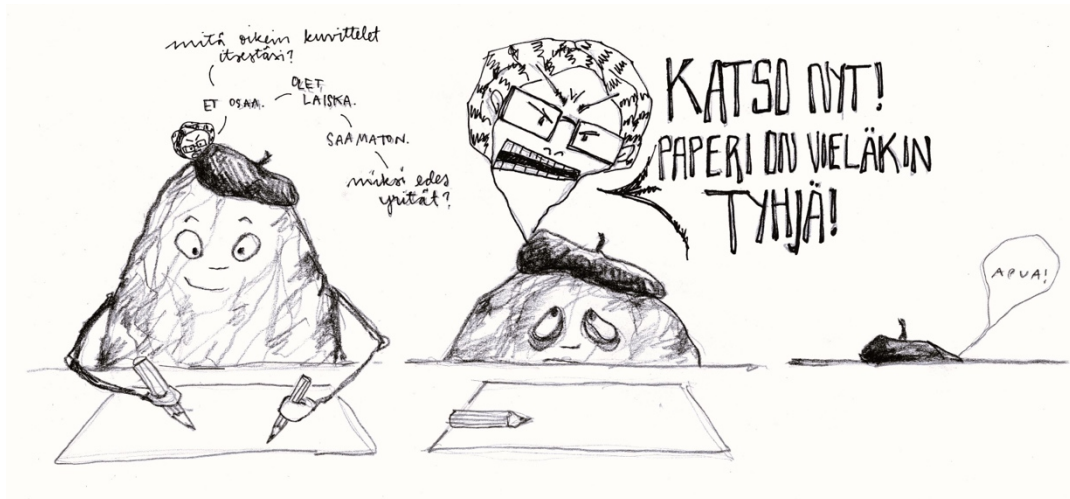 mitä oikein kuvittelet
itsestäsi?
ET OSAA.
OLET
LAISKA.
SAAMATON.
miksi edes
yrität?
KATSO NYT!
PAPERI ON VIELÄKIN
TYHJÄ!
APUA!